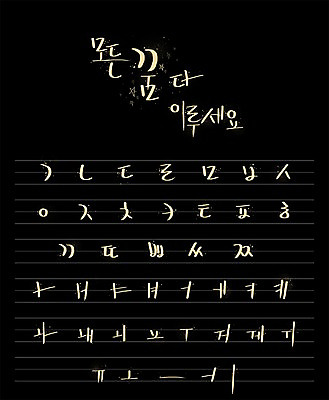 모든 꿈 다
이루세요
ㄱ ㄴ ㄷ ㄹ ㅁ ㅂ ㅅ
ㅇ ㅈ ㅊ ㅋ ㅌ ㅍ ㅎ
ㄲ ㄸ ㅃ ㅆ ㅉ
ㅏ ㅐ ㅑ ㅒ ㅓ ㅔ ㅕ ㅖ
ㅘ ㅙ ㅚ ㅛ ㅜ ㅝ ㅞ ㅟ
ㅠ ㅗ ㅡ ㅢ ㅣ